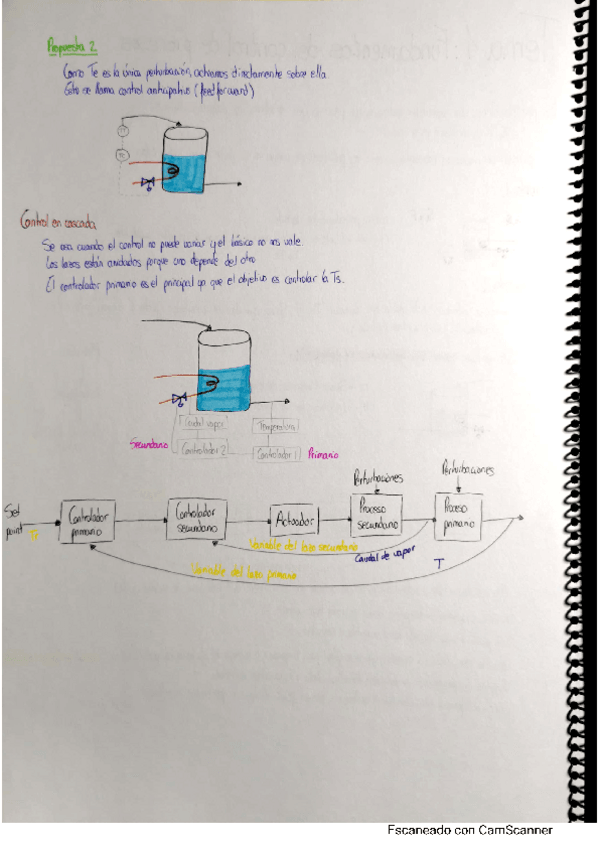 Propuesta 2
Como Te es la única perturbación, actuamos directamente sobre ella
Esto se llama control anticipativo (feedforward)
TT
TC
Control en cascada
Se usa cuando el control no puede variar y el básico no nos vale.
Los lazos están anidados porque uno depende del otro
El controlador primario es el principal que el objetivo es controlar la Ts.
Caudal vapor
Temperatura
Secundario
Controlador 2
Controlador 1
Primario
Perturbaciones
Perturbaciones
Set point
Tr
Controlador primario
Controlador secundario
Actuador
Proceso secundario
Proceso primario
Variable del lazo secundario
Caudal de vapor
Variable del lazo primario
T
Escaneado con CamScanner